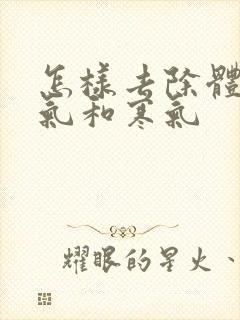 怎樣去除體
氣和寒氣
耀眼的星火、